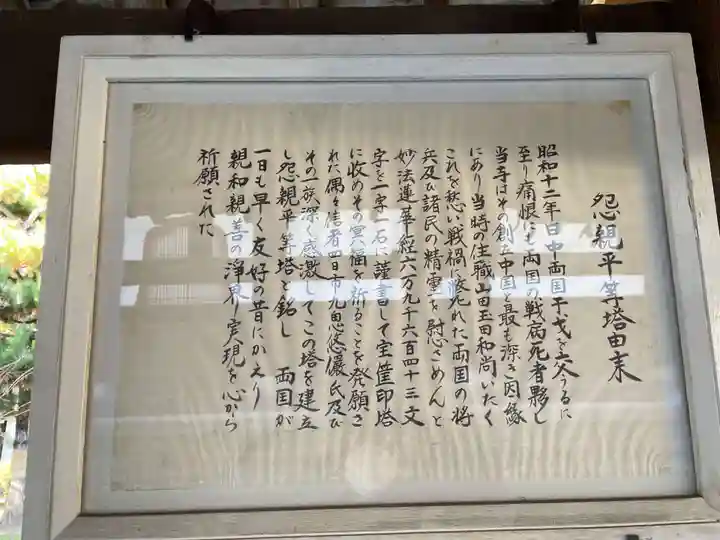 怨親平等塔由来
昭和十二年日中両国干戈を交うるに
至り痛恨にも両国の戦病死者夥し
当寺はその創立中国と最も深き因縁
にあり当時の住職山田玉田和尚いたく
これを愁い戦禍に斃れた両国の将
兵及び諸民の精霊を慰さめんと
妙法蓮華経六万九千六百四十三文
字を一字一石に謹書して宝篋印塔
に收めその冥福を祈ることを発願さ
れた偶々信者四日市九鬼悠儼氏及び
その一族深く感激してこの塔を建立
し怨親平等塔と銘し 両国が
一日も早く友好の昔にかえり
親和親善の浄界実現を心から
祈願された